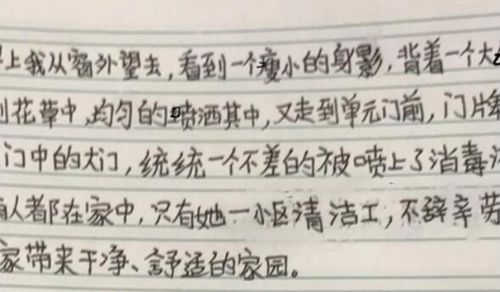 上我从窗外望去，看到一个瘦小的身影，背着一个大
花草中，均匀的喷洒其中，又走到单元门前，门牌
门中的大门，统统一个不差的被喷上了消毒
人都在家中，只有她一小区清洁工，不辞辛劳
家带来干净、舒适的家园。